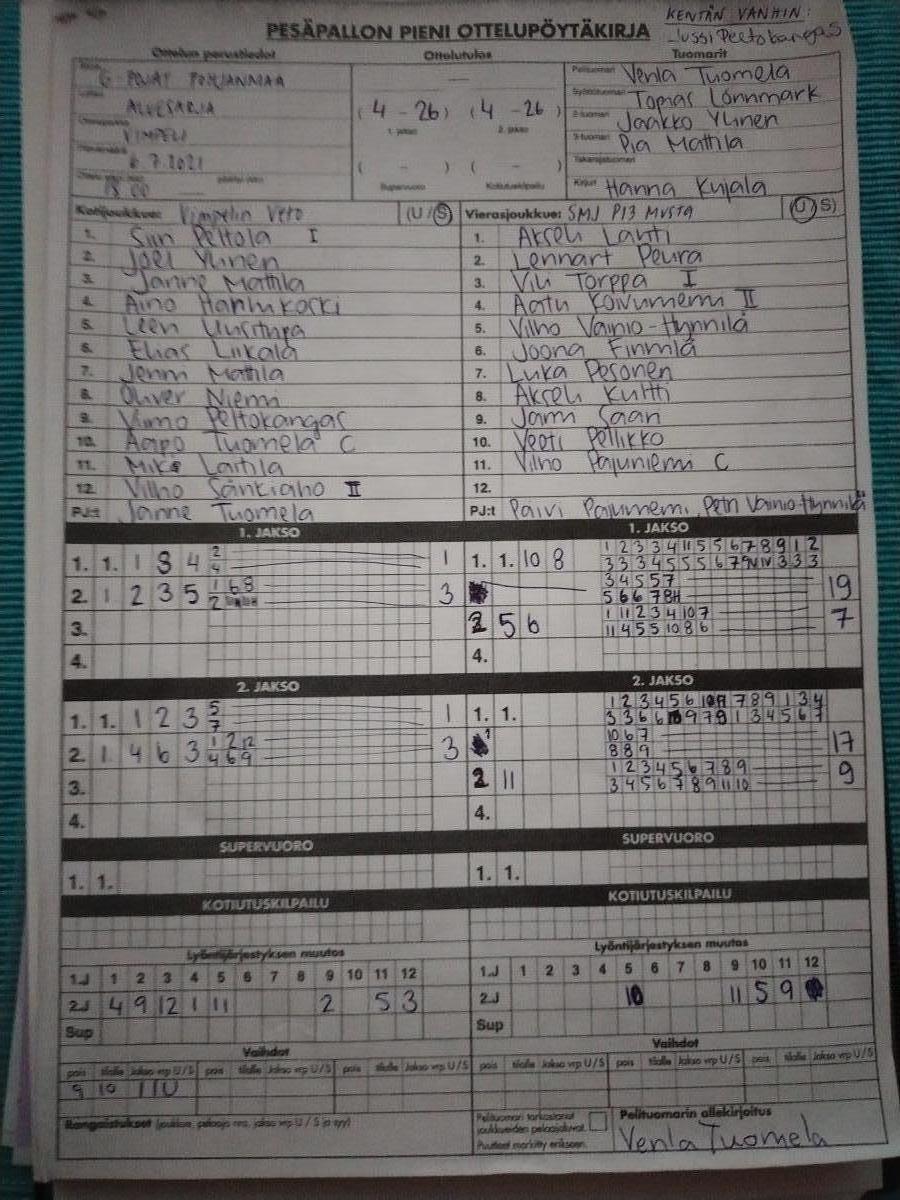 KENTÄN VANHIN:
Jussi Peltokangas
PESÄPALLON PIENI OTTELUPÖYTÄKIRJA
Ottelun perustiedot
Ottelutulos
Tuomarit
POJAT POHJANMAA
ALUESARJA
VIMPELI
6.7.2021
18.00
(4 - 26) (4 - 26)
1. jakso 2. jakso
( - ) ( - )
Supervuoro Kotiutuskilpailu
Pelituomari Venla Tuomela
Syöttötuomari Tomas Lönnmark
2-tuomari Jaakko Ylinen
3-tuomari Pia Mattila
Takarajatuomari
Kirjuri Hanna Kujala
Kotijoukkue: Vimpelin Veto (U/S)
1. Siiri Peltola I
2. Joel Ylinen
3. Janne Mattila
4. Aino Hanhikoski
5.
6. Elias Liikala
7. Jenni Mattila
8. Oliver Niemi
9. Vimo Peltokangas
10. Aapo Tuomela C
11. Mika Laitila
12. Vilho Sänkiaho II
PJ:t Janne Tuomela
Vierasjoukkue: SMJ P13 MUSTA (U/S)
1. Akseli Lahti
2. Lennart Peura
3. Vili Torppa I
4. Aatu Koivuniemi II
5. Vilho Vainio-Hynnilä
6. Joona Finnilä
7. Luka Pesonen
8. Akseli Kultti
9. Jami Saari
10. Veeti Pellikko
11. Vilho Pajuniemi C
12.
PJ:t Päivi Pajuniemi, Petri Vainio-Hynnilä
1. JAKSO
1. 1. 1 3 4 2 4 1
2. 1 2 3 5 1 6 8 2 3
3.
4.
1. JAKSO
1. 1. 10 8 1 2 3 3 4 11 5 5 6 7 8 9 1 2
3 4 5 5 7 19
5 6 6 7 8
2 5 6 1 11 2 3 4 10 7 7
11 4 5 5 10 8 6
4.
2. JAKSO
1. 1. 1 2 3 5 7 1
2. 1 4 6 3 1 2 12 4 6 9 3
3.
4.
2. JAKSO
1. 1.
10 6 7 17
8 8 9
2 11 1 2 3 4 5 6 7 8 9 9
3 4 5 6 7 8 9 11 10
4.
SUPERVUORO
1. 1.
SUPERVUORO
1. 1.
KOTIUTUSKILPAILU
KOTIUTUSKILPAILU
Lyöntijärjestyksen muutos
1.J 1 2 3 4 5 6 7 8 9 10 11 12
2.J 4 9 12 1 11 2 5 3
Sup
Lyöntijärjestyksen muutos
1.J 1 2 3 4 5 6 7 8 9 10 11 12
2.J 10 11 5 9
Sup
Vaihdot
pois tilalle Jakso vrp U/S pois tilalle Jakso vrp U/S pois tilalle Jakso vrp U/S
9 10 1 1 U
Vaihdot
pois tilalle Jakso vrp U/S pois tilalle Jakso vrp U/S pois tilalle Jakso vrp U/S
Rangaistukset (joukkue, pelaaja nro, jakso vrp U / S ja syy)
Pelituomari tarkastanut
joukkueiden pelaajaluvat.
Puutteet merkitty erikseen.
Pelituomarin allekirjoitus
Venla Tuomela